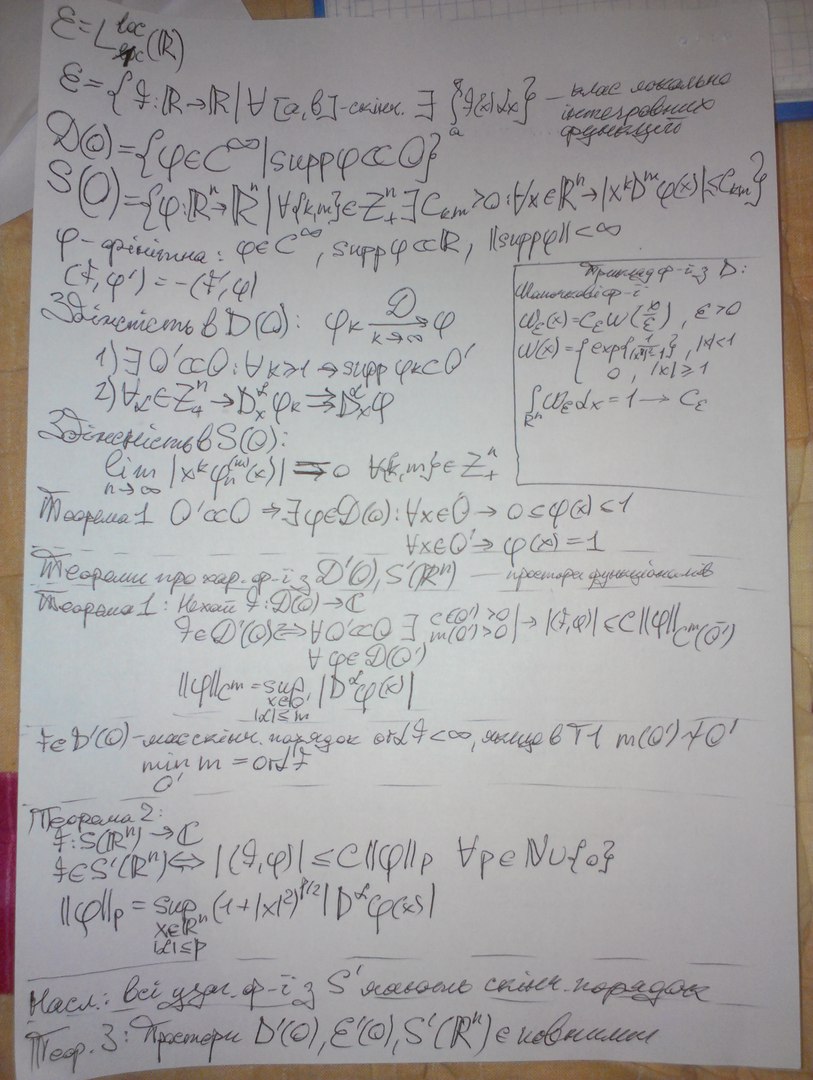 ℰ = L^{loc}_{loc}(ℝ)
ℰ = {f: ℝ→ℝ | ∀[a,b]-скінч. ∃ ∫_a^b f(x)dx} — клас локально
інтегровних
функцій
D(O) = {φ∈C^∞ | supp φ ⊂⊂ O}
S(O) = {φ: ℝ^n→ℝ^n | ∀{k,m}∈ℤ_+^n ∃ C_{km}>0: ∀x∈ℝ^n → |x^k D^m φ(x)| ≤ C_{km}}
φ - фінітна: φ∈C^∞, supp φ ⊂⊂ ℝ, ||supp φ|| < ∞
(f, φ') = -(f', φ)
Приклад ф-ї з D:
Шапочкові ф-ї
ω_ε(x) = C_ε ω(x/ε), ε>0
ω(x) = { exp{1/(|x|²-1)}, |x|<1
0, |x| ≥ 1
∫_{ℝ^n} ω_ε dx = 1 → C_ε
Збіжність в D(O): φ_k →^D_{k→∞} φ
1) ∃ O' ⊂⊂ O: ∀k≥1 → supp φ_k ⊂ O'
2) ∀α∈ℤ_+^n → D_x^α φ_k ⇉ D_x^α φ
Збіжність в S(O):
lim_{n→∞} |x^k φ_n^{(m)}(x)| ⇉ 0 ∀{k,m}∈ℤ_+^n
Теорема 1 O' ⊂⊂ O ⇒ ∃ φ∈D(O): ∀x∈O → 0 ≤ φ(x) ≤ 1
∀x∈O' → φ(x) = 1
Теореми про хар. ф-ї з D'(O), S'(ℝ^n) — простори функціоналів
Теорема 1: Нехай f: D(O)→ℂ
f∈D'(O) ⇔ ∀O' ⊂⊂ O ∃ c(O')>0 m(O')>0 | → |(f,φ)| ≤ C||φ||_{C^m(Ō')}
∀φ∈D(O')
||φ||_{C^m} = sup_{x∈O', |α|≤m} |D^α φ(x)|
f∈D'(O) - має скінч. порядок ord f < ∞, якщо в Т1 m(O') ≠ O'
min_{O'} m = ord f
Теорема 2:
f: S(ℝ^n) → ℂ
f∈S'(ℝ^n) ⇔ |(f,φ)| ≤ C||φ||_p ∀p∈ℕ∪{0}
||φ||_p = sup_{x∈ℝ^n, |α|≤p} (1+|x|²)^{p/2} |D^α φ(x)|
Насл.: всі узаг. ф-ї з S' мають скінч. порядок
Теор. 3: Простори D'(O), ℰ'(O), S'(ℝ^n) є повними